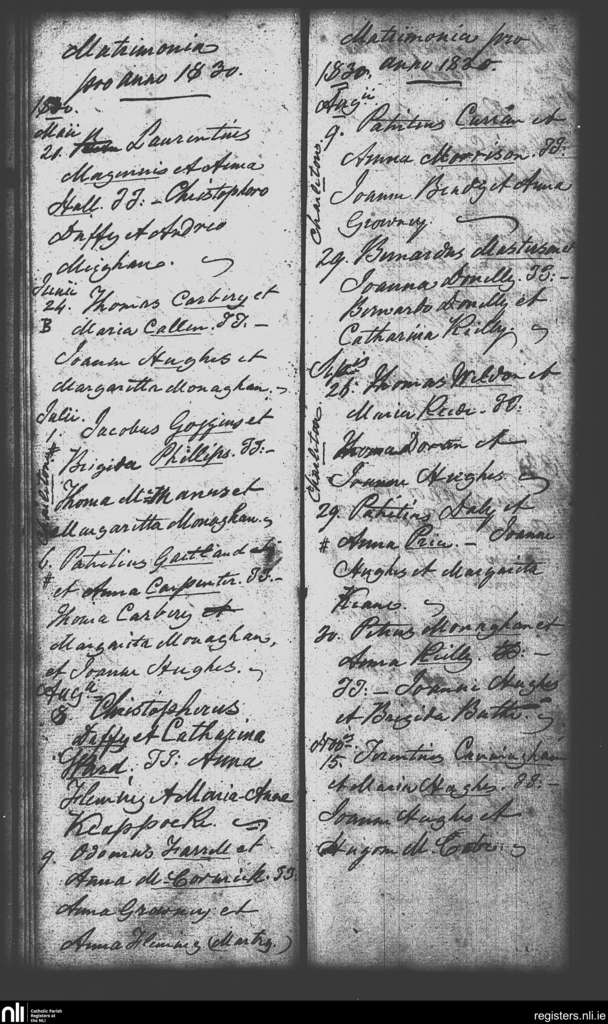 Matrimonia
pro anno 1830.
1830
Maii
21. Laurentius
Maginnis et Anna
Hall. TT: – Christophoro
Duffy et Andrea
Meighan.
Junii
24. Thomas Carbery et
B Maria Callen. TT: –
Joanne Hughes et
Margaritta Monaghan.
Julii.
1. Jacobus Goggins et
# Brigida Phillips. TT: –
Thoma McManus et
Margaritta Monaghan.
6. Patritius Gartland
# et Anna Carpenter. TT. –
Thoma Carbery et
Margarita Monaghan,
et Joanne Hughes.
Augii
8 Christopherus
Duffy et Catharina
Ward. TT: Anna
Fleming et Maria Anne
Knappock.
9. Odomus Farrell et
Anna McCormick. TT:
Anna Growney et
Anna Fleming (Martry.)
Matrimonia pro
1830. anno 1830.
Augii
9. Patritius Curran et
Anna Morrison. TT:
Joanne Brady et Anna
Growney
Charletons
29. Bernardus
Joanna Donelly. TT: –
Bernardo Donelly et
Catharina Reilly.
26. Thomas Weldon et
Maria TT:
Thoma Doran et
Joanne Hughes.
Charleton
29. Patritius Daly et
# Anna Price. – Joanne
Hughes et Margarita
Keane.
30. Petrus Monaghan et
Anna Reilly. –
TT: – Joanne Hughes
et Brigida
15. Torentius Cunningham
et Maria Hughes. TT: –
Joanne Hughes et
Hugone McCabe.
nli
Catholic Parish
Registers at
the NLI
registers.nli.ie